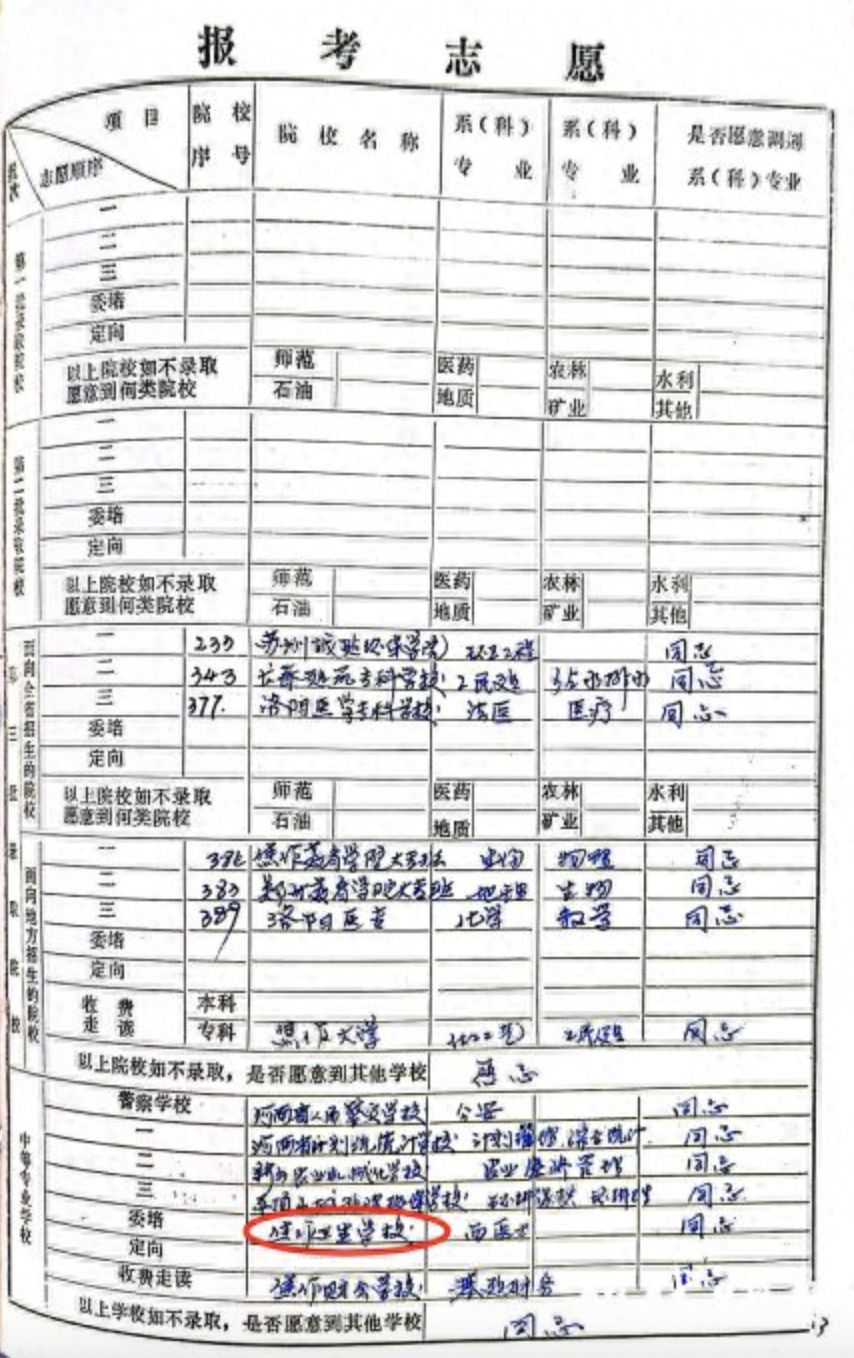 报考志愿
项目 院校序号 院校名称 系(科)专业 系(科)专业 是否愿意调 系(科)专业
志愿顺序
第一批录取院校
一
二
三
委培
定向
以上院校如不录取 师范 医药 农林 水利
愿意到何类院校 石油 地质 矿业 其他
第二批录取院校
一
二
三
委培
定向
以上院校如不录取 师范 医药 农林 水利
愿意到何类院校 石油 地质 矿业 其他
第三批录取院校
面向全省招生的院校
一 233 苏州城建环保学院 环卫工程 同志
二 343 专科学校 工民建 同志
三 377. 洛阳医学专科学校 法医 医疗 同志
委培
定向
以上院校如不录取 师范 医药 农林 水利
愿意到何类院校 石油 地质 矿业 其他
面向地方招生的院校
一 焦作教育学院大专班 生物 物理 同志
二 383 郑州教育学院大专班 地理 生物 同志
三 389 洛阳医专 化学 数学 同志
委培
定向
收费 本科
走读 专科 焦作大学 化工工艺 工民建 同志
以上院校如不录取，是否愿意到其他学校
中等专业学校
警察学校 河南省人民警察学校 公安 同志
一 河南省计划统计学校 计划 综合统计 同志
二 农业机械化学校 农业经济管理 同志
三 平顶山 学校 同志
委培 焦作卫生学校 西医士 同志
定向
收费走读 焦作财会学校 同志
以上学校如不录取，是否愿意到其他学校 同志
13